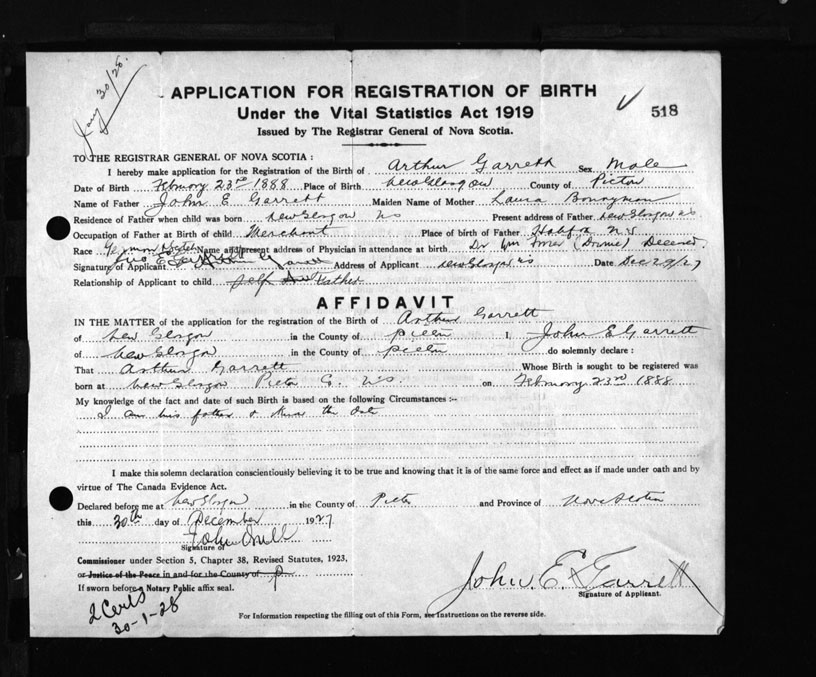 Jany 30/28.
APPLICATION FOR REGISTRATION OF BIRTH
Under the Vital Statistics Act 1919
518
Issued by The Registrar General of Nova Scotia.
TO THE REGISTRAR GENERAL OF NOVA SCOTIA :
I hereby make application for the Registration of the Birth of Arthur Garrett Sex Male
Date of Birth February 23rd 1888 Place of Birth New Glasgow County of Pictou
Name of Father John E Garrett Maiden Name of Mother Laura Bonnyman
Residence of Father when child was born New Glasgow NS Present address of Father New Glasgow NS
Occupation of Father at Birth of child Merchant Place of birth of Father Halifax N S
Race German Name and present address of Physician in attendance at birth Dr Wm Deceased.
Signature of Applicant Address of Applicant New Glasgow NS Date Dec 29/27
Relationship of Applicant to child self Father
AFFIDAVIT
IN THE MATTER of the application for the registration of the Birth of Arthur Garrett
of New Glasgow in the County of Pictou I, John E Garrett
of New Glasgow in the County of Pictou do solemnly declare :
That Arthur Garrett Whose Birth is sought to be registered was
born at New Glasgow Pictou Co. NS. on February 23rd 1888
My knowledge of the fact and date of such Birth is based on the following Circumstances :-
I am his father & know the date
I make this solemn declaration conscientiously believing it to be true and knowing that it is of the same force and effect as if made under oath and by
virtue of The Canada Evidence Act.
Declared before me at New Glasgow in the County of Pictou and Province of Nova Scotia
this 30th day of December 1927
Signature of
Commissioner under Section 5, Chapter 38, Revised Statutes, 1923,
or Justice of the Peace in and for the County of
If sworn before a Notary Public affix seal.
John E. Garrett
Signature of Applicant.
2 Certs
30-1-28
For Information respecting the filling out of this Form, see Instructions on the reverse side.